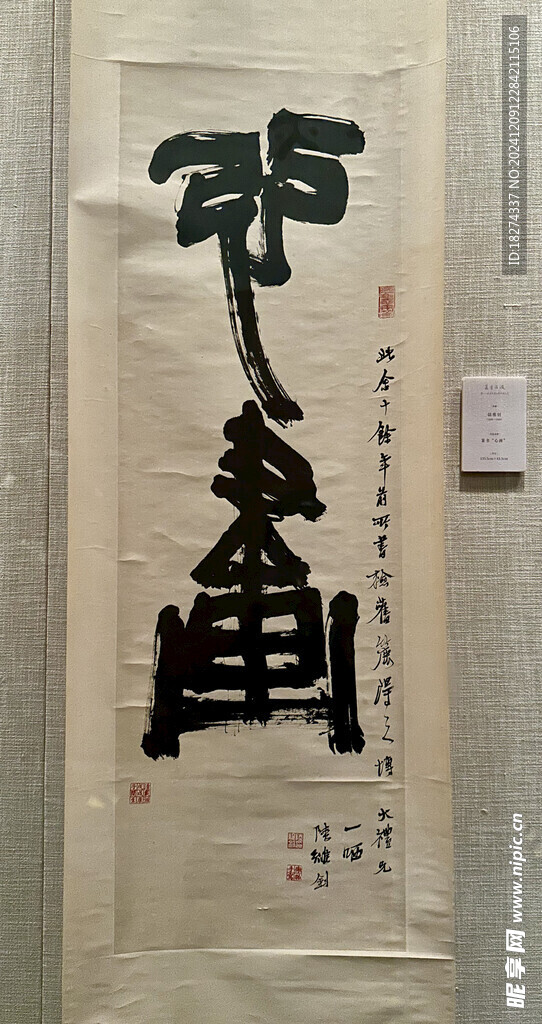 心畫
此余十餘年前所書檢舊簏得之博
大禮兄
一哂
陸維釗
篆书“心画”
ID:18274337 NO:20241209122842115106
昵享网 www.nipic.cn